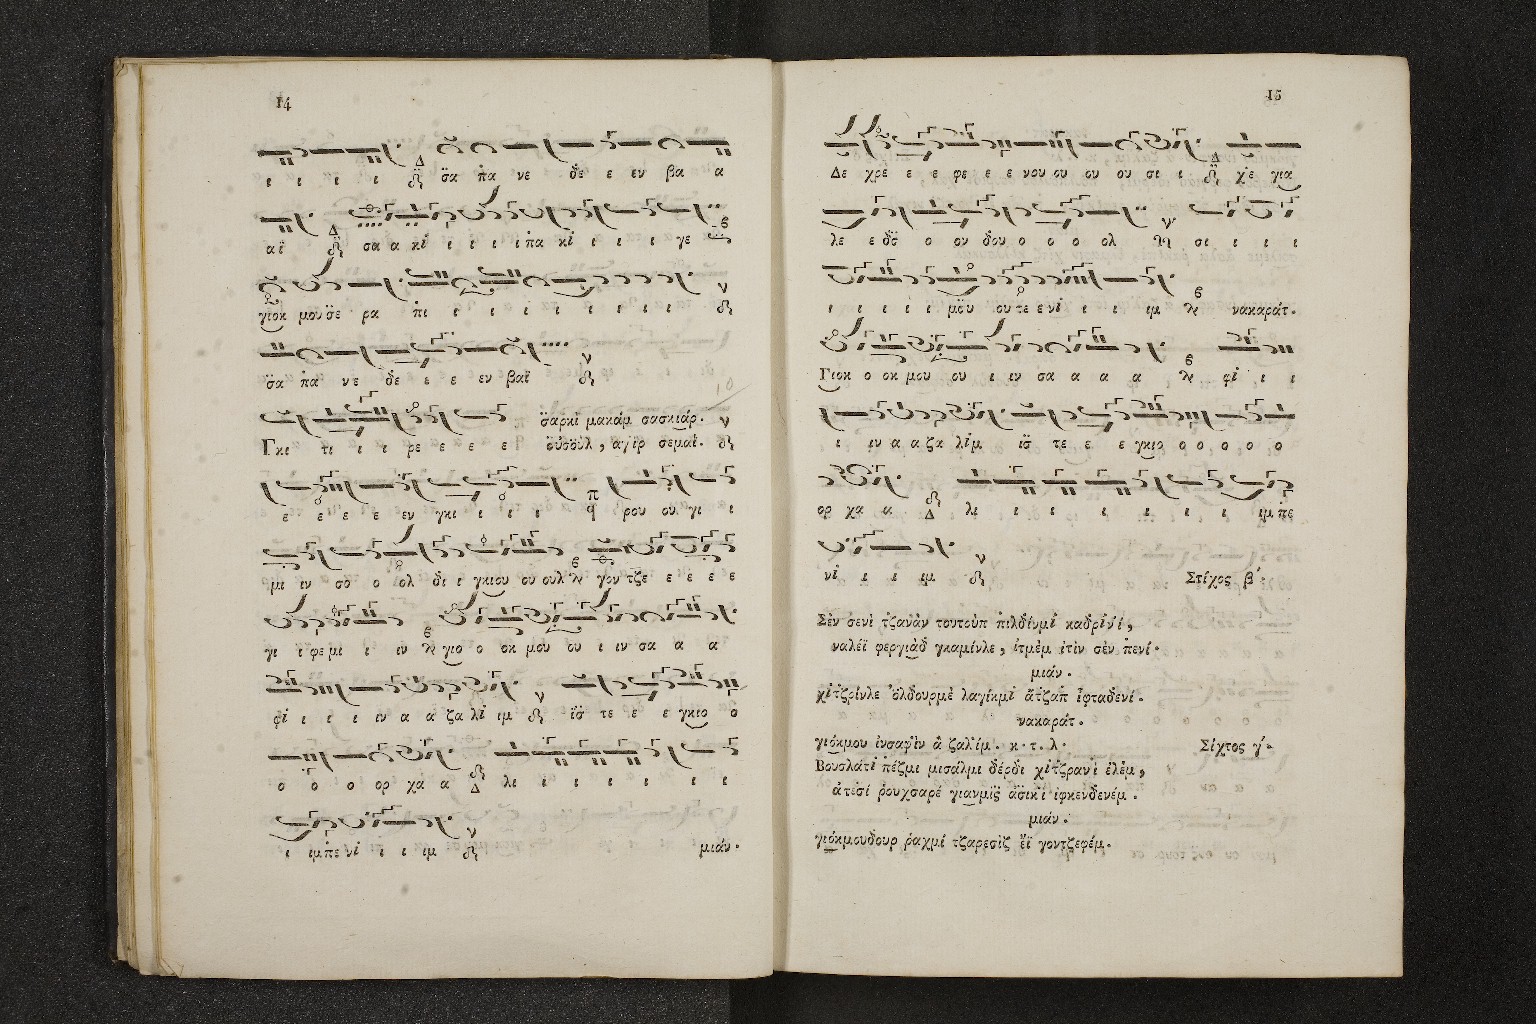 14
ι ι ι ι σ̈α πα νε δε ε εν βα α
αϊ σα α κι ι ι ι ι πα κι ι ι ι γε
γιοκ μου σ̈ε ρα πι ι ι ι ι ι ι ι ι
σ̈α πα νε δε ε ε εν βαϊ
σ̈αρκὶ μακάμ σασκιάρ.
Γκι τι ι ι ρε ε ε ε οὐσ̈οὺλ, αγὶρ σεμαΐ.
ε ε ε ε εν γκι ι ι ι ρου ου γι ι
μι ιν σο ο ολ δι ι γκιου ου ουλ γον τζε ε ε ε ε
γι ι φε μι ι ιν γιο ο οκ μου ου ι ιν σα α α
φι ι ι ι ιν α α ζα λι ιμ ισ̈ τε ε ε γκιο ο
ο ο ο ορ χα α λι ι ι ι ι ι ι
ι ιμ πε νι ι ι ιμ μιάν.
15
Δε χρε ε ε φε ε ε νου ου ου ου σι ι χ̇ε για
λε ε δο̈ ο ον δου ο ο ο ολ σι ι ι ι
ι ι ι ι ι μο̈υ ου τε ε νι ι ι ιμ νακαράτ.
Γιοκ ο οκ μου ου ι ιν σα α α α φι ι ι
ι ιν α α ζα λιμ ισ̈ τε ε ε γκιο ο ο ο ο ο
ορ χα α λι ι ι ι ι ι ι ι ιμ πε
νι ι ι ιμ Στίχος β΄:
Σὲν σενὶ τζανὰν τουτοὺπ πιλδίνμι καδρίνί,
ναλέϊ φεργιὰδ γκαμίνλε, ἰτμὲμ ἰτὶν σὲν πενί.
μιάν.
χιτζρίνλε ὀλδουρμὲ λαγίκμι ἄτζαπ ἰφταδενί.
νακαράτ.
γιόκμου ἰνσαφὶν ἂ ζαλίμ. κ. τ. λ. Σίχτος γ΄.
Βουσλατὶ πέζμι μισάλμι δέρδι χιτζρανὶ ἐλέμ,
ἀτεσί ῥουχσαρέ γιανμὶσ̈ ἀσ̈ικὶ ἰφκενδενέμ.
μιάν.
γιόκμουδουρ ῥαχμί τζαρεσὶζ ἔϊ γοντζεφέμ.